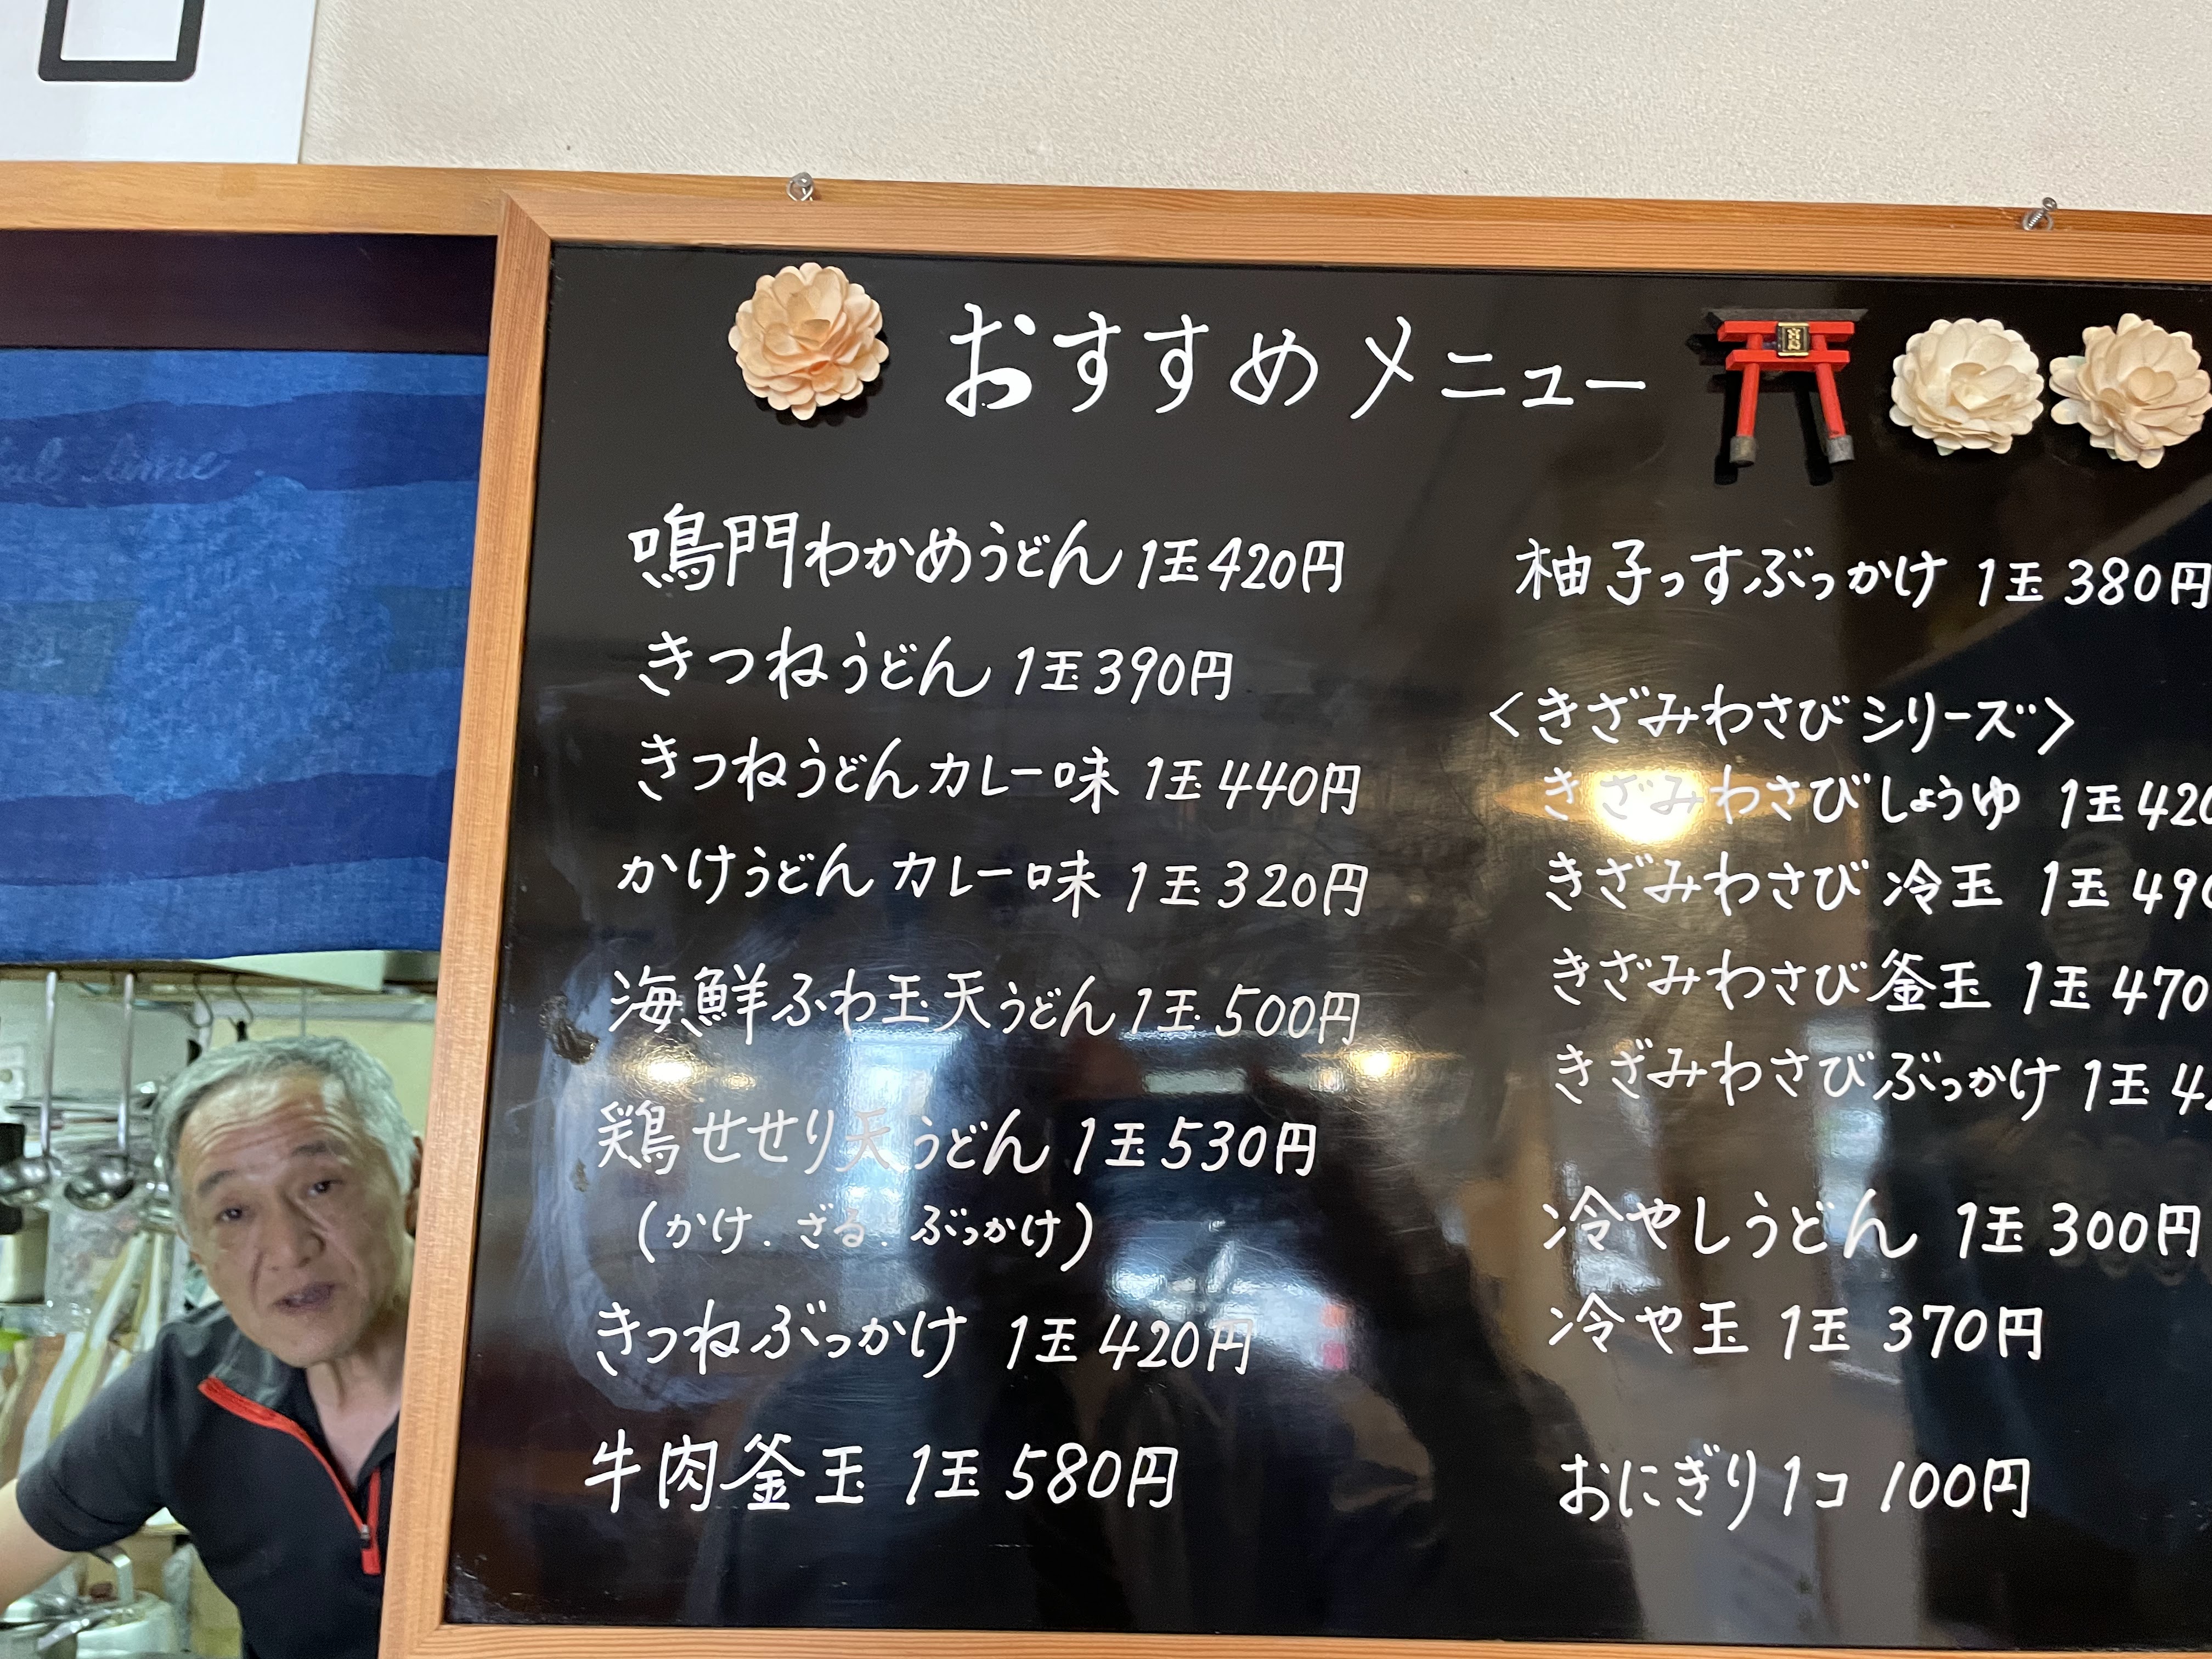 time
おすすめメニュー
鳴門わかめうどん 1玉 420円
きつねうどん 1玉 390円
きつねうどんカレー味 1玉 440円
かけうどん カレー味 1玉 320円
海鮮ふわ玉天うどん 1玉 500円
鶏せせり天うどん 1玉 530円
(かけ.ざる.ぶっかけ)
きつねぶっかけ 1玉 420円
牛肉釜玉 1玉 580円
柚子っすぶっかけ 1玉 380円
〈きざみわさびシリーズ〉
きざみわさびしょうゆ 1玉 420
きざみわさび 冷玉 1玉 490
きざみわさび釜玉 1玉 470
きざみわさびぶっかけ 1玉 4
冷やしうどん 1玉 300円
冷や玉 1玉 370円
おにぎり 1コ 100円